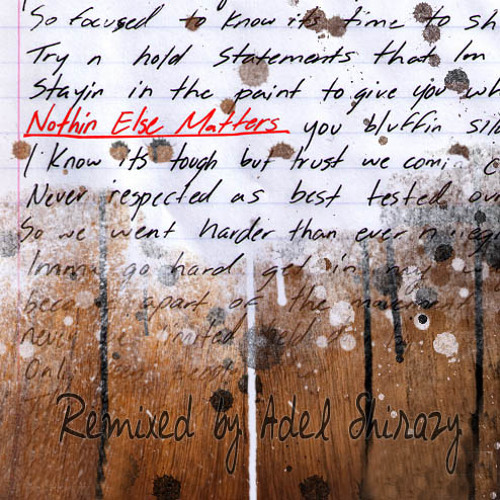 So focused to know its time to sh
Try n hold statements that Im
Stayin in the paint to give you wh
Nothin Else Matters you bluffin
I Know its tough but trust we comi
Never respected as best tested our
So we went harder than ever n
Imma go hard get in my
apart of the movement
Only
Remixed by Adel Shirazy